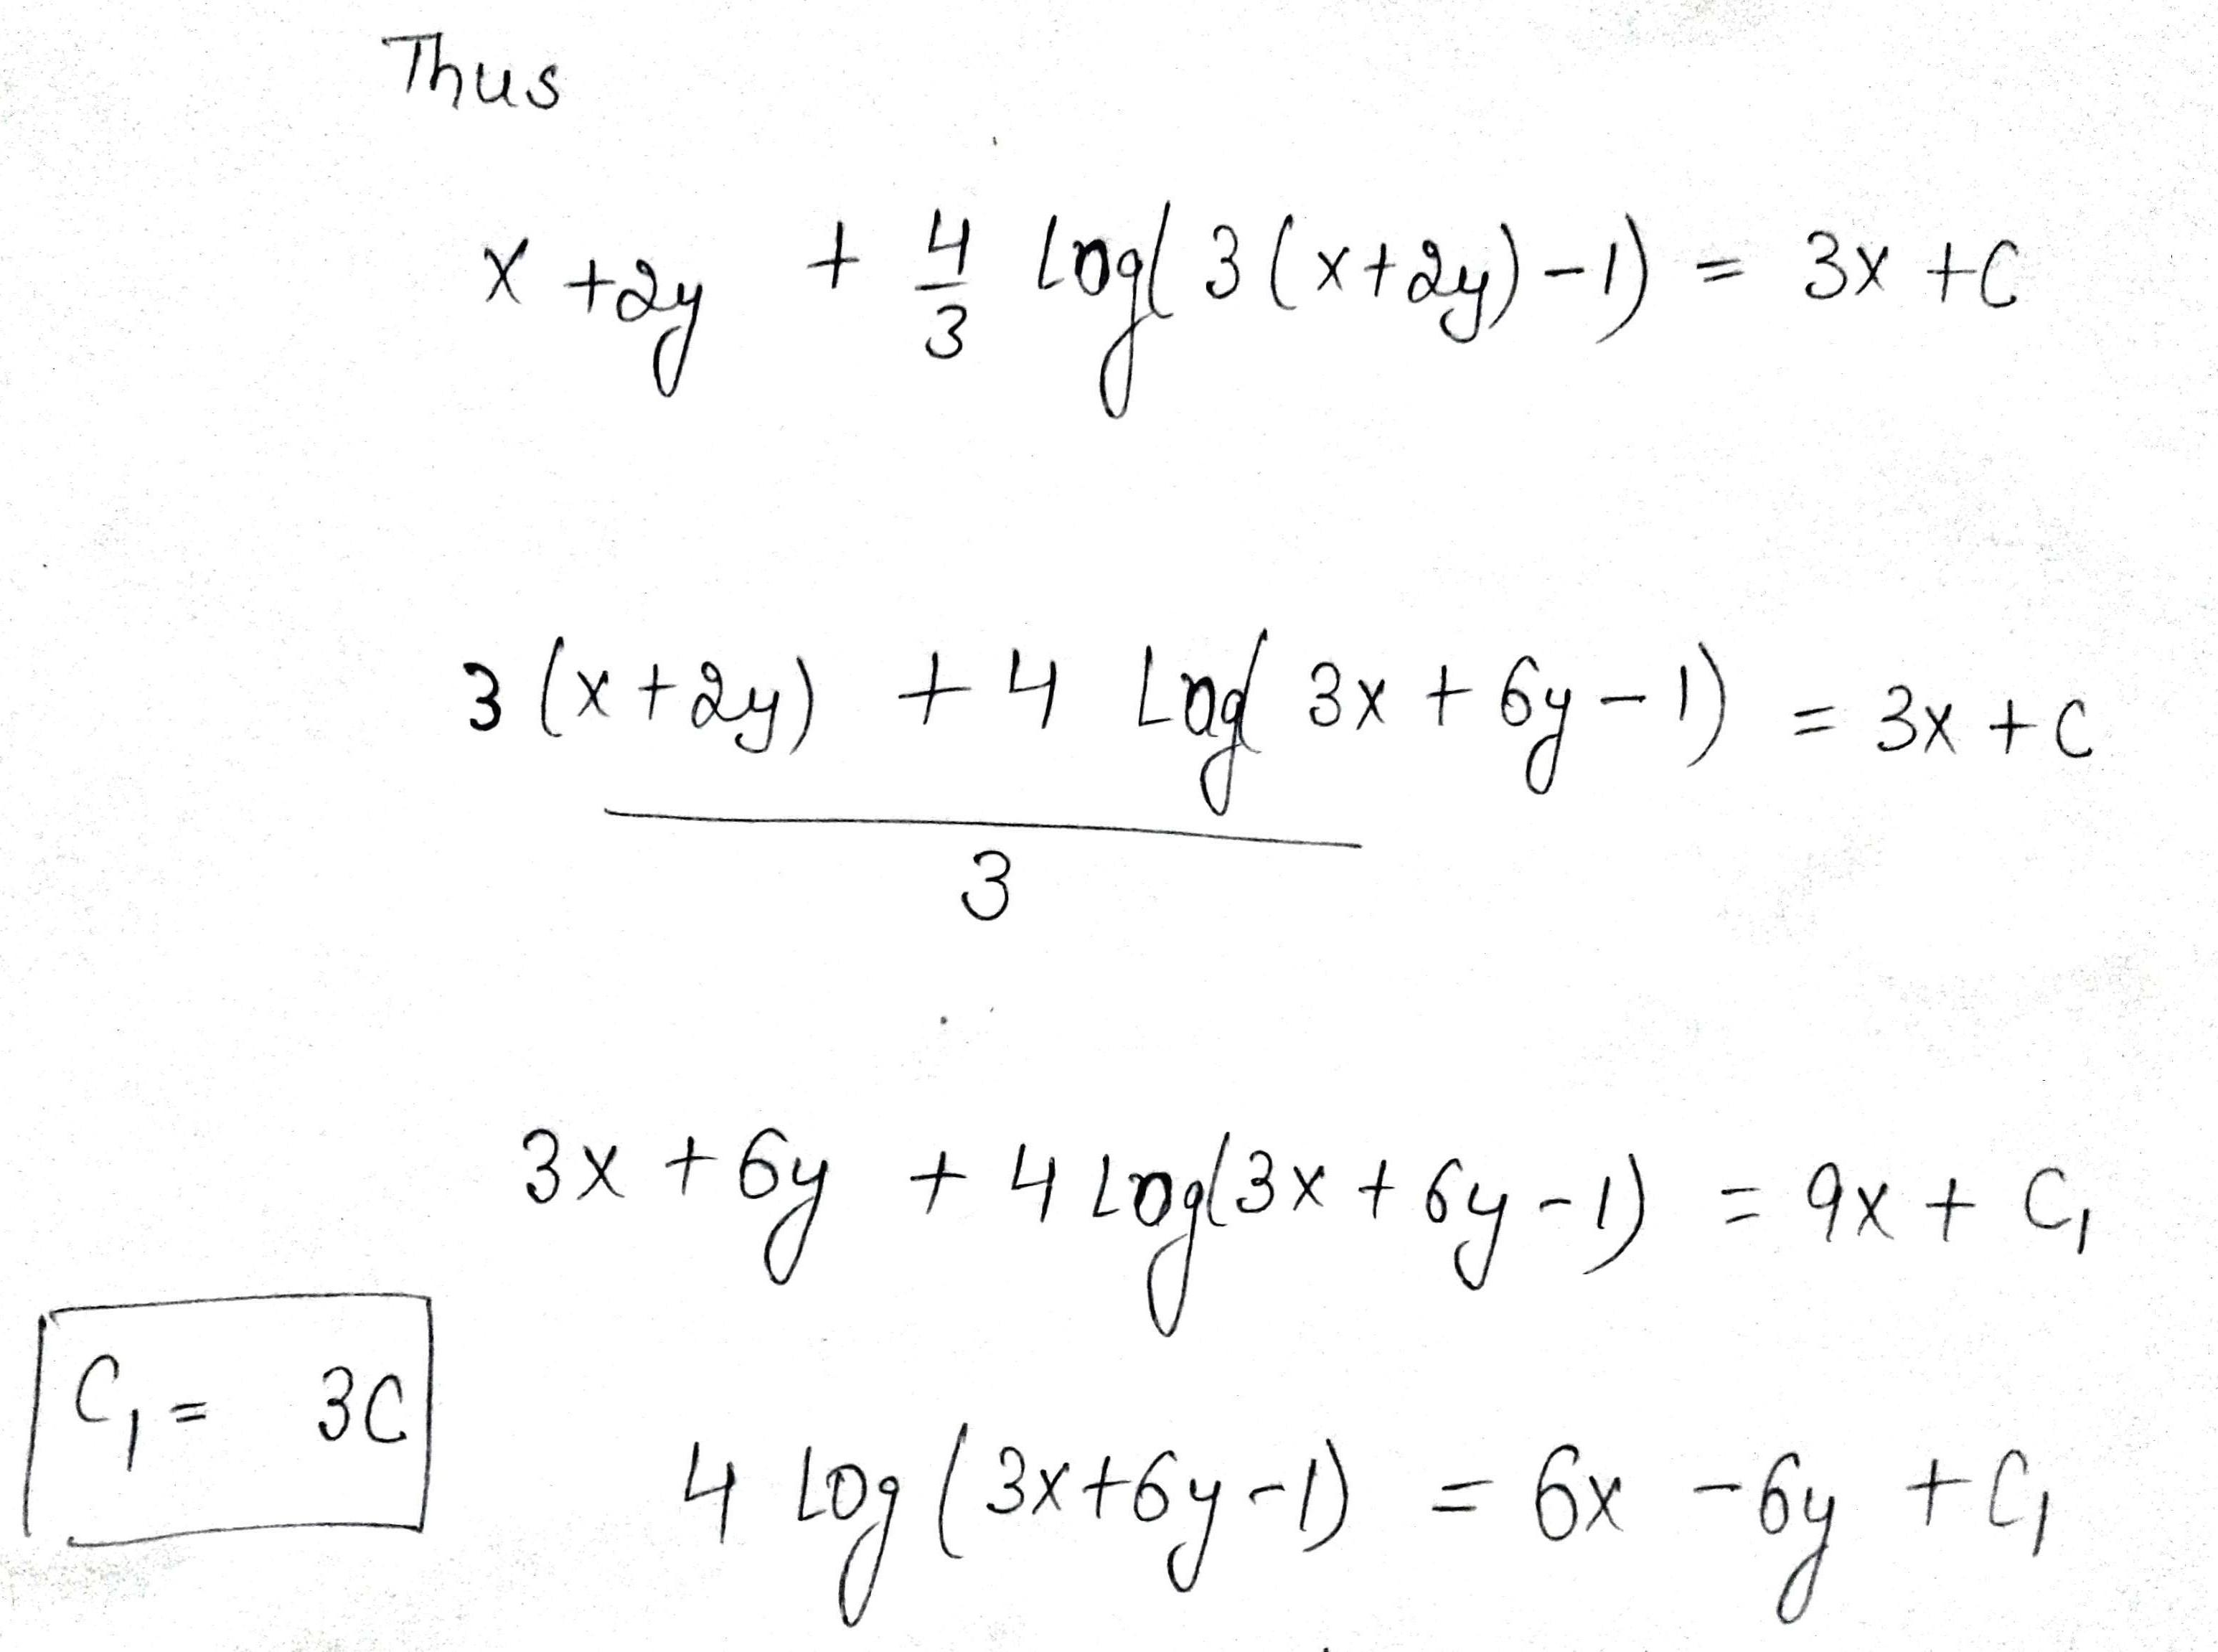 Thus
x + 2y + 4/3 Log( 3(x+2y) - 1) = 3x + C
3 (x+2y) + 4 Log( 3x + 6y - 1) = 3x + C
3
3x + 6y + 4 Log(3x + 6y - 1) = 9x + C₁
C₁ = 3C
4 Log (3x+6y-1) = 6x - 6y + C₁